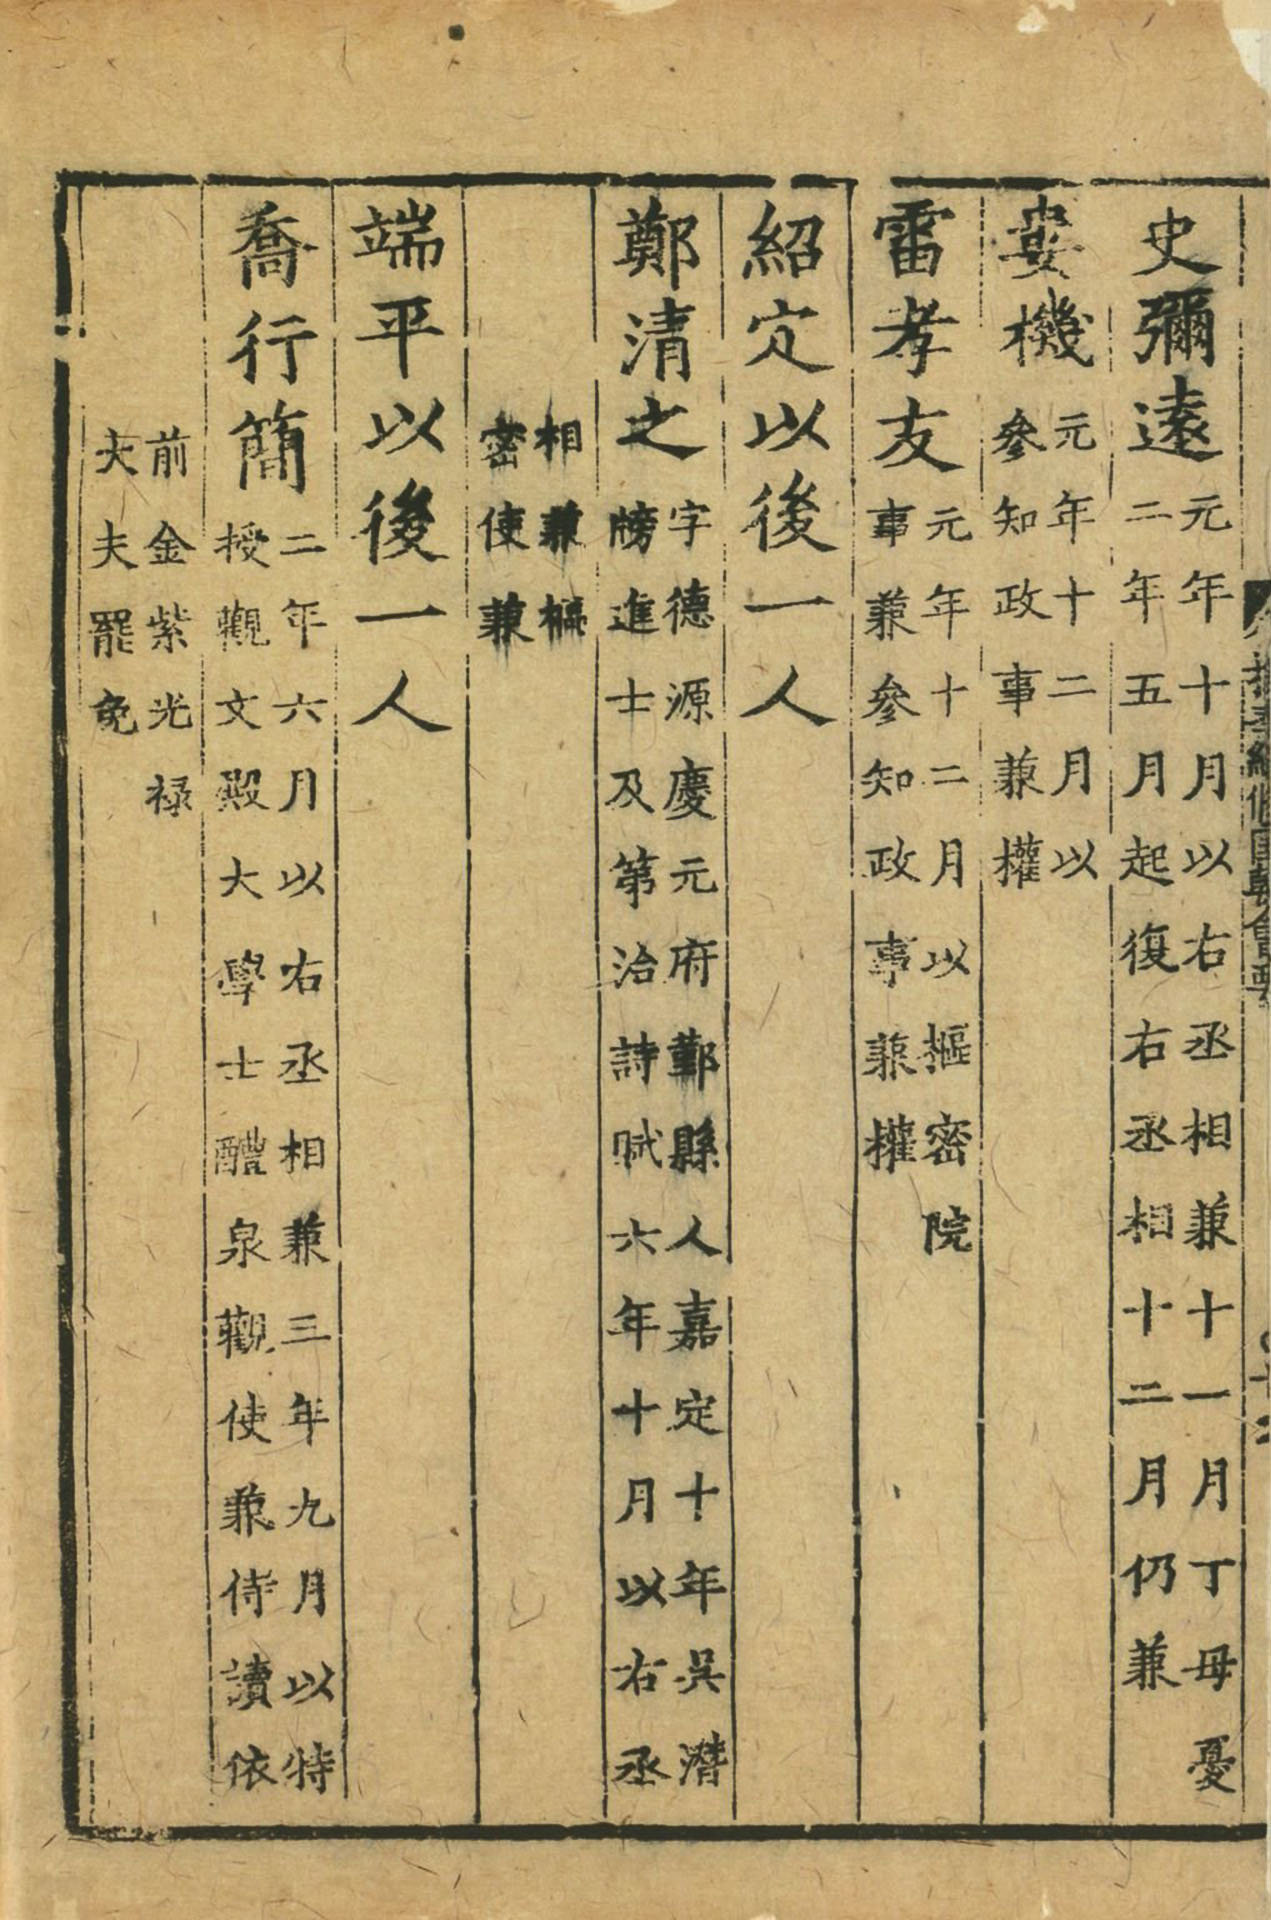 史彌遠元年十月以右丞相兼十一月丁母憂
二年五月起復右丞相十二月仍兼
婁機元年十二月以
參知政事兼權
雷孝友元年十二月以樞密院
事兼參知政事兼權
紹定以後一人
鄭清之字德源慶元府鄞縣人嘉定十年吳潛
牓進士及第治詩賦六年十月以右丞
相兼樞
密使兼
端平以後一人
喬行簡二年六月以右丞相兼三年九月以特
授觀文殿大學士醴泉觀使兼侍讀依
前金紫光祿
大夫罷免